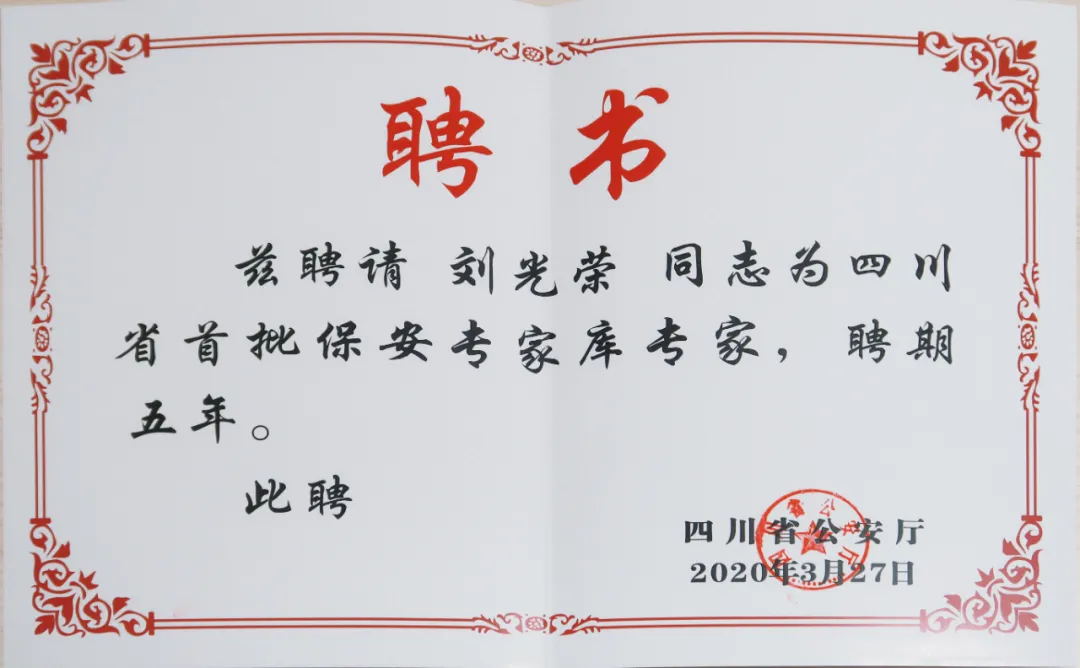 聘书
兹聘请 刘光荣 同志为四川
省首批保安专家库专家，聘期
五年。
此聘
四川省公安厅
2020年3月27日